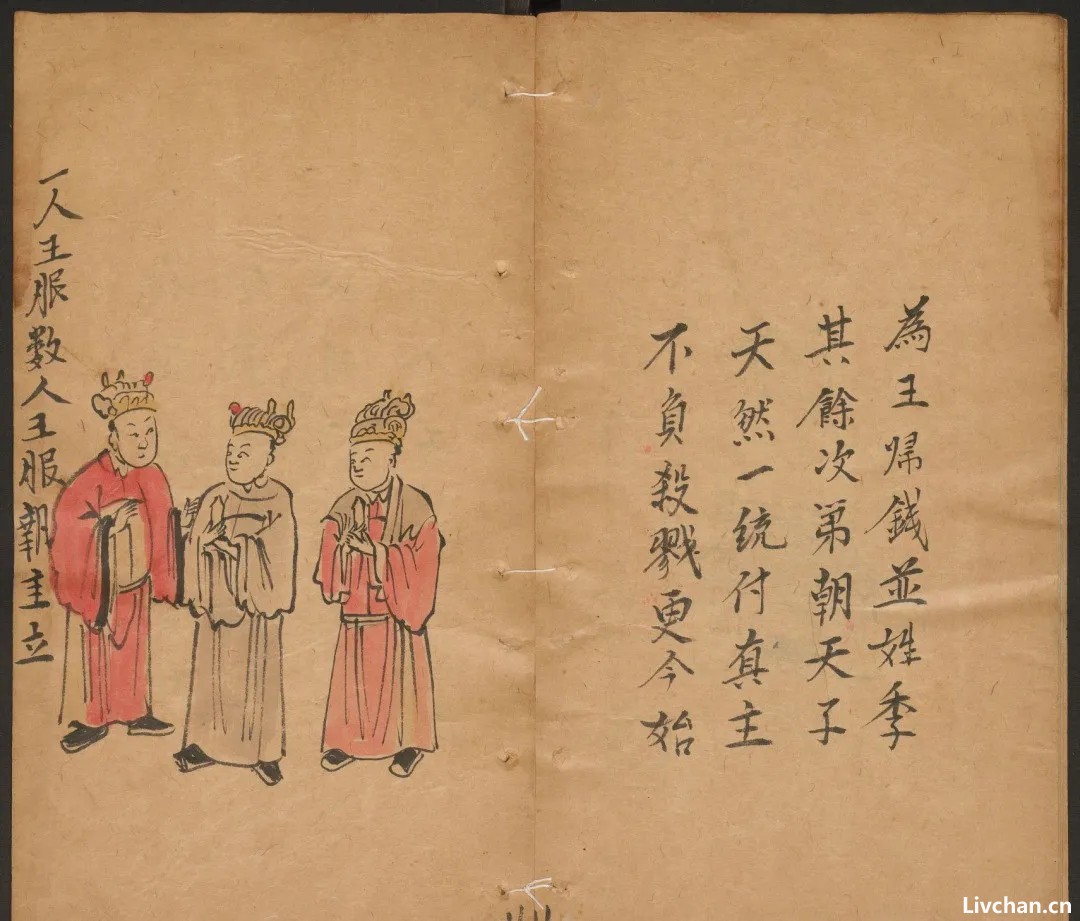 為王帰錢並姓季
其餘次第朝天子
天然一統付真主
不負殺戮更今始
一人王服數人王服執圭立
Livchan.cn